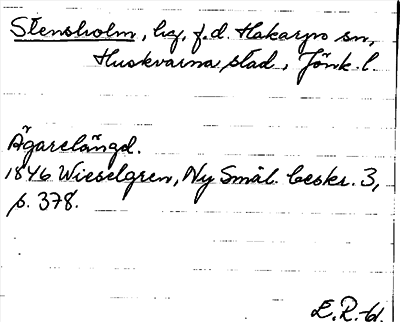 Stensholm, hg, f.d. Hakarps sn,
Huskvarna stad, Jönk. l.
Ägarelängd.
1846 Wieselgren, Ny Smål. beskr. 3,
s. 378.
E.R-d.